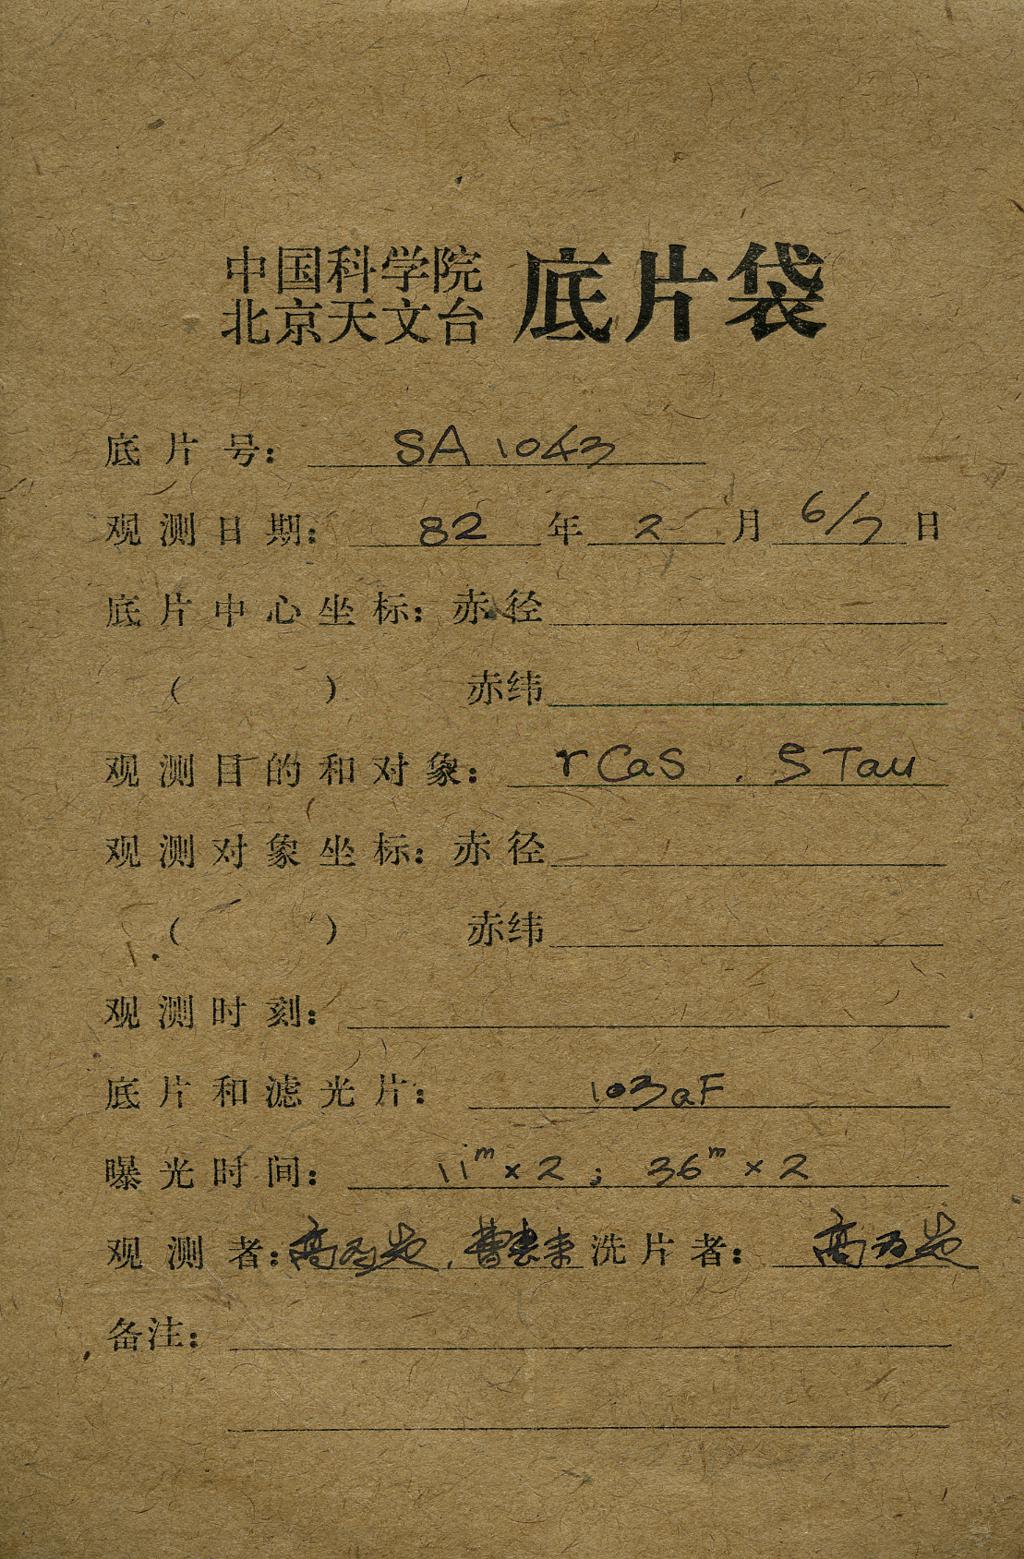 中国科学院
北京天文台 底片袋
底片号: SA 1043
观测日期: 82 年 2 月 6/7 日
底片中心坐标: 赤径
( ) 赤纬
观测目的和对象: r Cas . ζ Tau
观测对象坐标: 赤径
( ) 赤纬
观测时刻:
底片和滤光片: 103aF
曝光时间: 11ᵐ×2 ; 36ᵐ×2
观测者: 高 . 曹 洗片者: 高
备注: